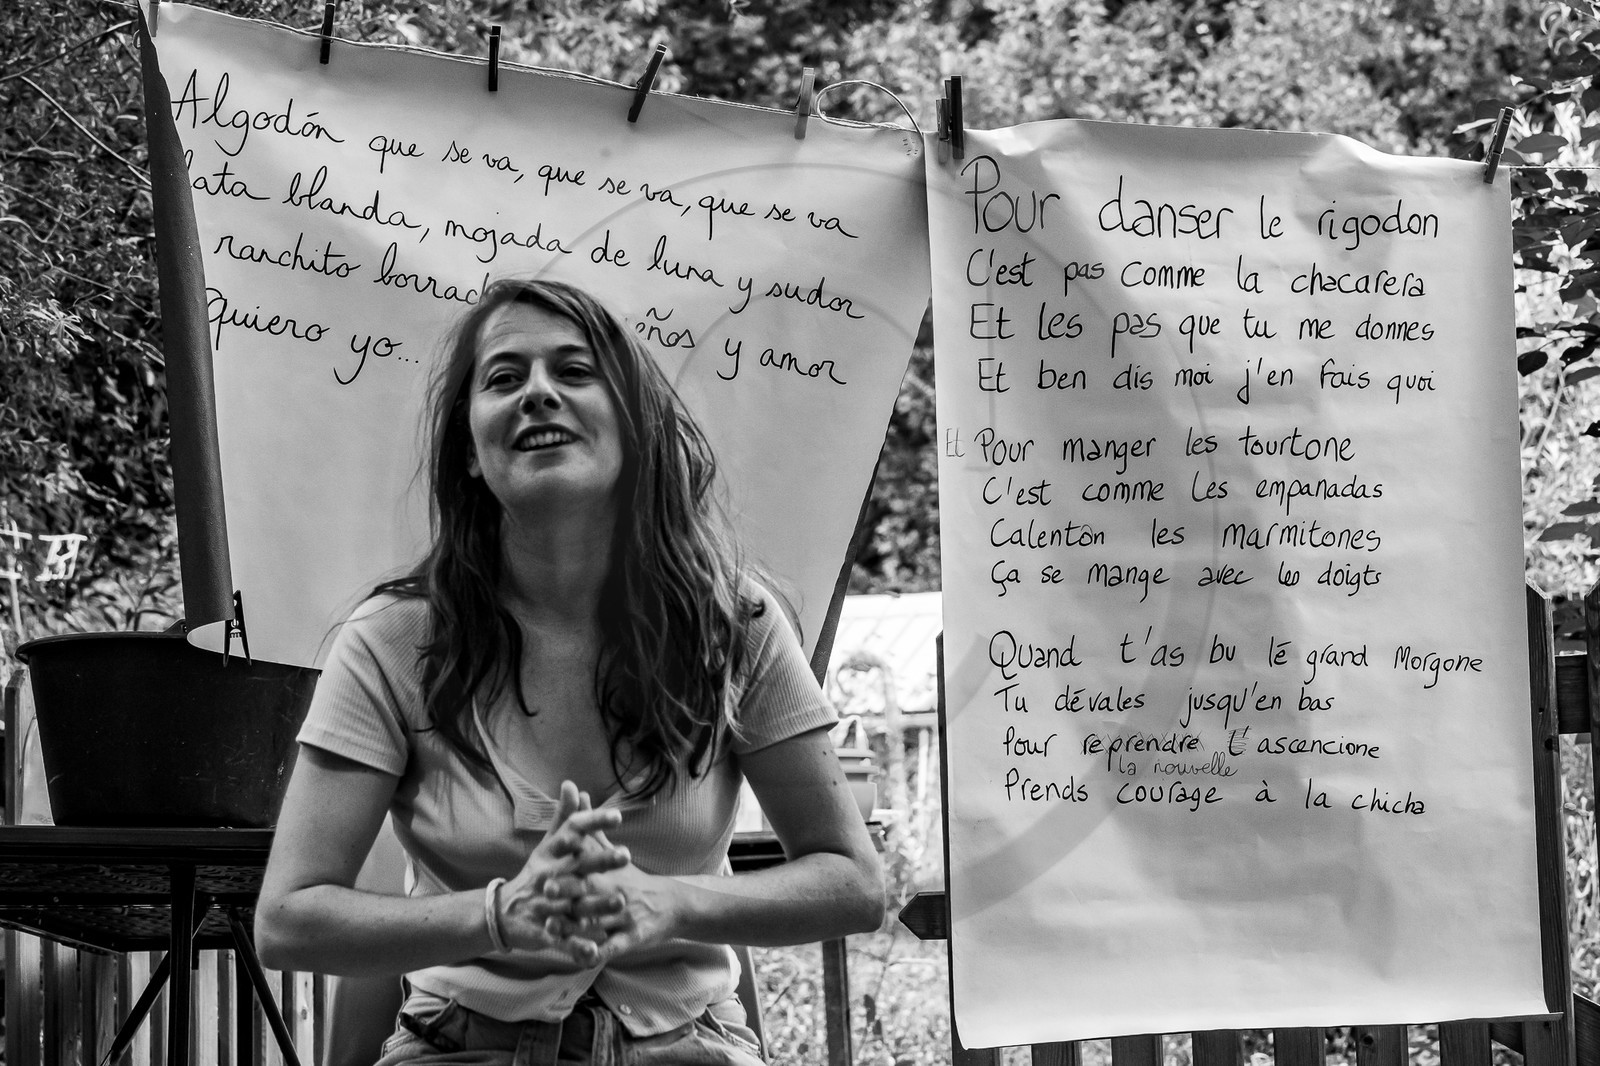 Algodón que se va, que se va, que se va
lata blanda, mojada de luna y sudor
ranchito borrach eños y amor
Quiero yo...
Pour danser le rigodon
C'est pas comme la chacarera
Et les pas que tu me donnes
Et ben dis moi j'en fais quoi
Et Pour manger les tourtone
C'est comme les empanadas
Calenton les marmitones
Ça se mange avec les doigts
Quand t'as bu le grand Morgone
Tu dévales jusqu'en bas
Pour reprendre t'ascencione
la nouvelle
Prends courage à la chicha